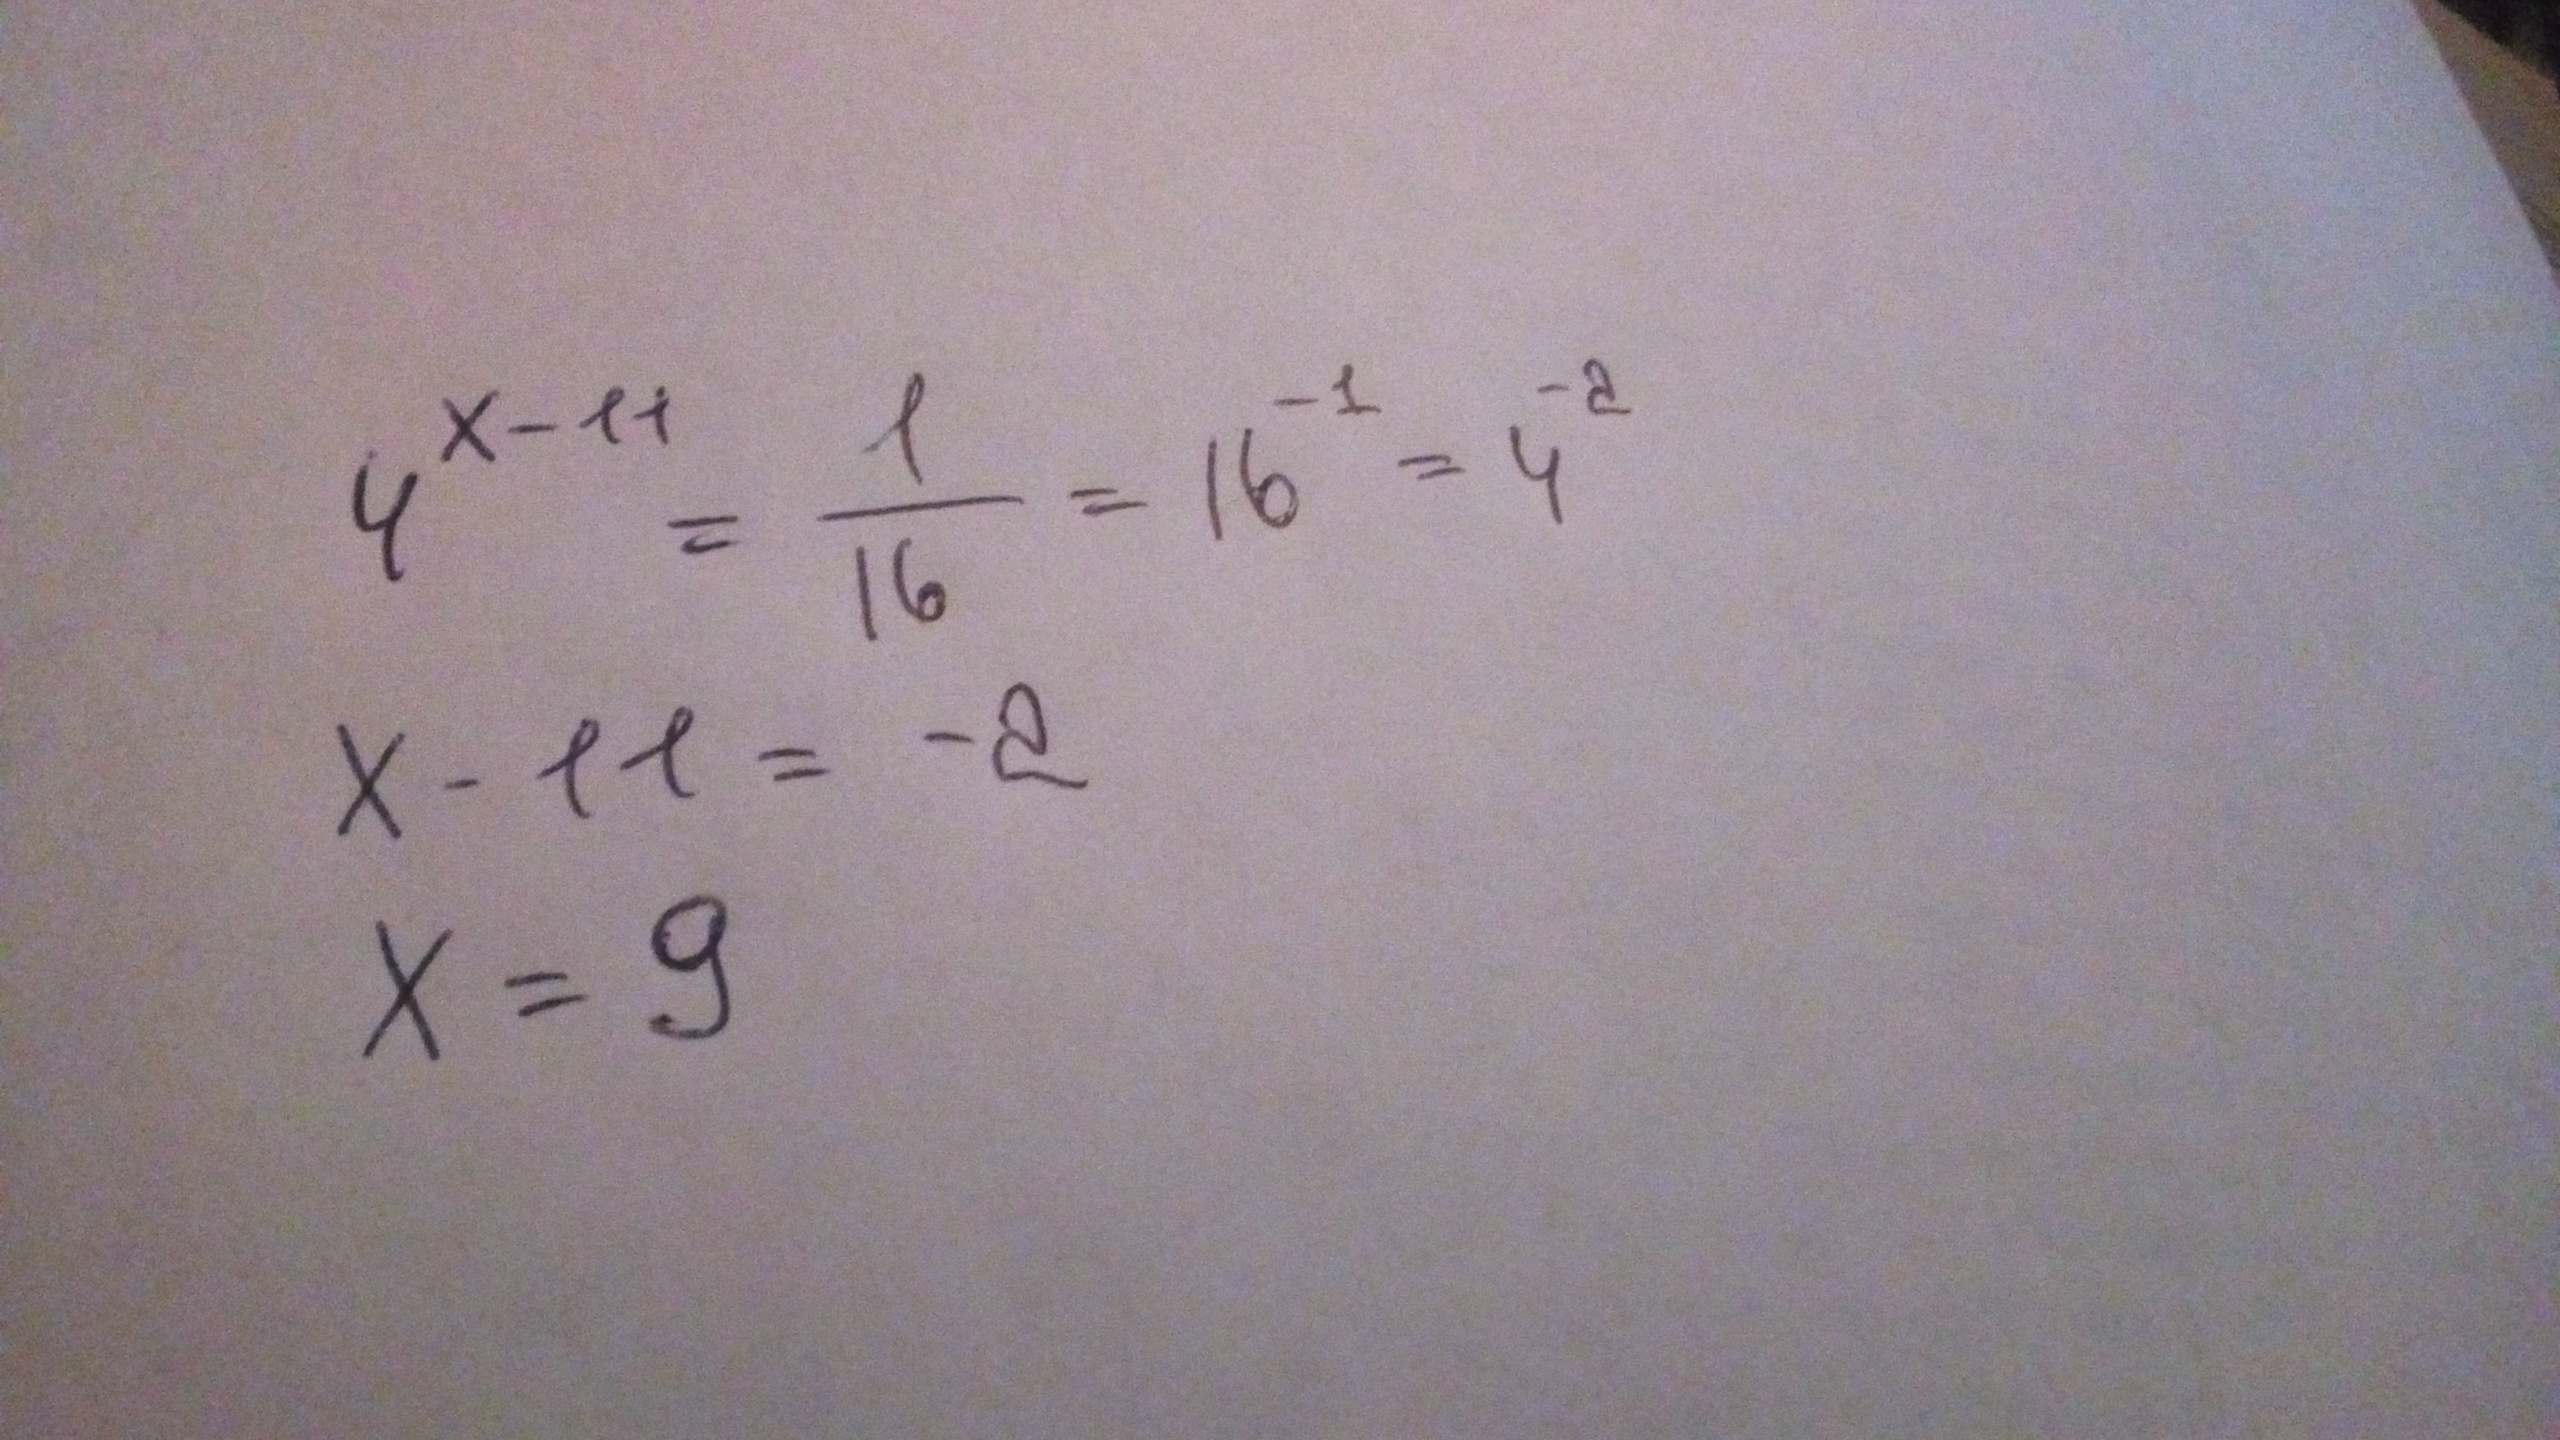 4^{x-11} = \frac{1}{16} = 16^{-1} = 4^{-2}
x - 11 = -2
x = 9